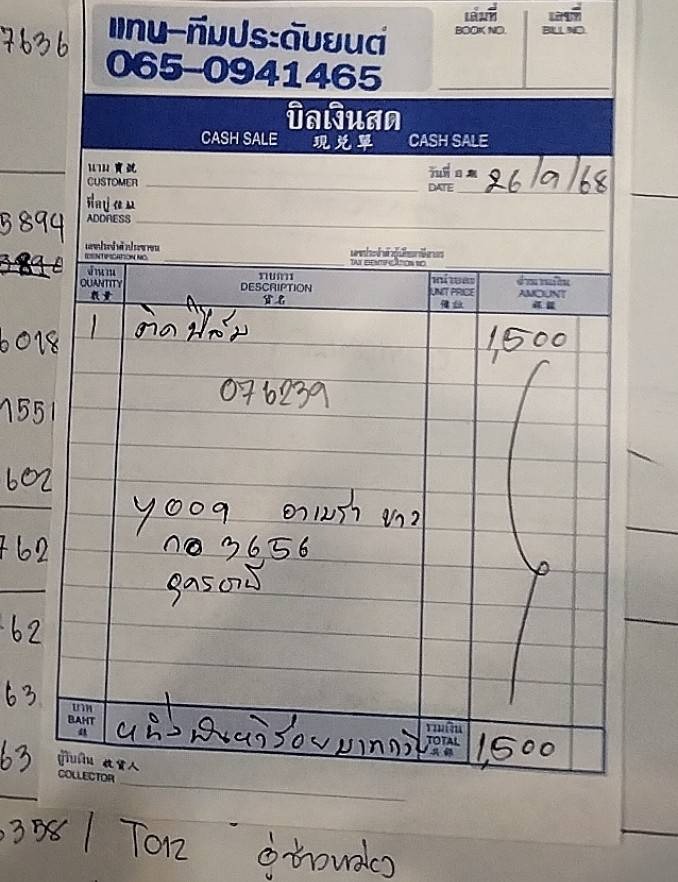 แทน-ทีมประดับยนต์
065-0941465
เล่มที่ เลขที่
BOOK NO. BILL NO.
บิลเงินสด
CASH SALE 現兑單 CASH SALE
นาม 寶號
CUSTOMER
วันที่ 日期
DATE 26/9/68
ที่อยู่ 住址
ADDRESS
เลขประจำตัวประชาชน
IDENTIFICATION NO.
เลขประจำตัวผู้เสียภาษีอากร
TAX IDENTIFICATION NO.
จำนวน รายการ หน่วยละ จำนวนเงิน
QUANTITY DESCRIPTION UNIT PRICE AMOUNT
數量 貨名
1 ติดฟิล์ม 1,500
076239
Y009 อาเมร่า ขาว
กอ 3656
อุดรธานี
บาท
BAHT
หนึ่งพันห้าร้อยบาทถ้วน
รวมเงิน
TOTAL 1,500
ผู้รับเงิน 收貨人
COLLECTOR
7636
5894
6018
1551
602
762
62
63
63
3358 / T012